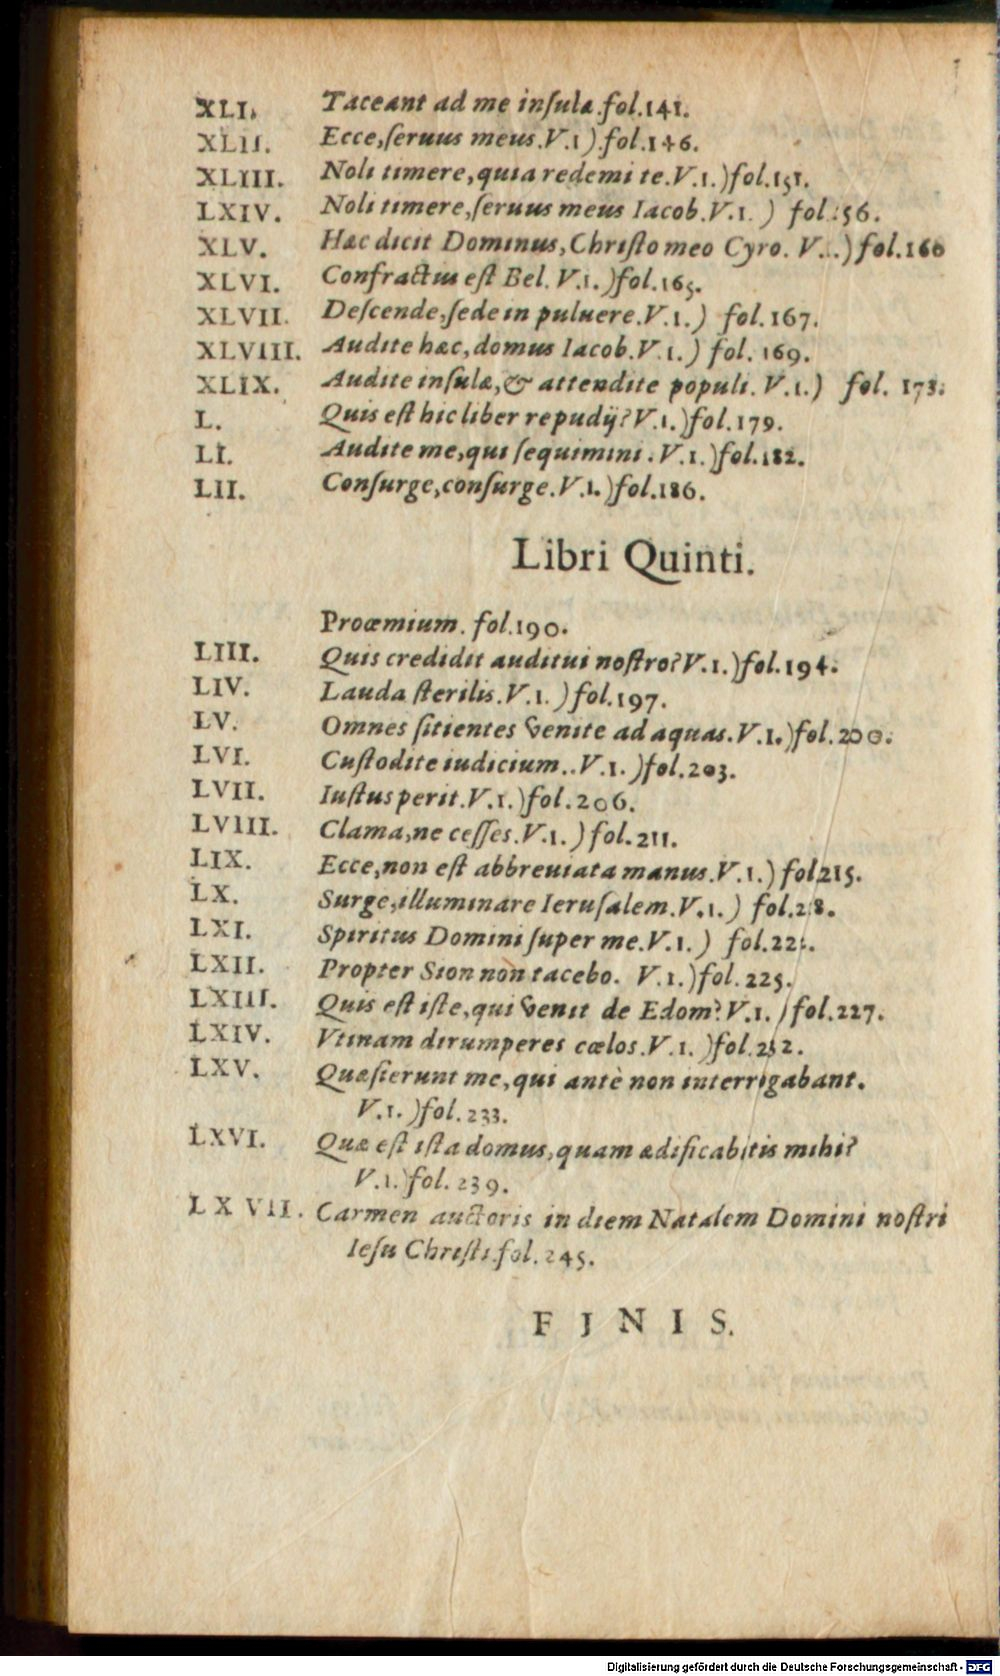 XLI. Taceant ad me inſulæ.fol.141.
XLII. Ecce,ſeruus meus.V.1).fol.146.
XLIII. Noli timere,quia redemi te.V.1.)fol.151.
LXIV. Noli timere,ſeruus meus Iacob.V.1.) fol.156.
XLV. Hæc dicit Dominus,Chriſto meo Cyro. V...)fol.160
XLVI. Confractus eſt Bel. V.1.)fol.165.
XLVII. Deſcende,ſede in puluere.V.1.) fol.167.
XLVIII. Audite hæc,domus Iacob.V.1.) fol. 169.
XLIX. Audite inſulæ,& attendite populi. V.1.) fol. 173.
L. Quis eſt hic liber repudij?V.1.)fol.179.
LI. Audite me,qui ſequimini.V.1.)fol.182.
LII. Conſurge,conſurge.V.1.)fol.186.
Libri Quinti.
Proœmium. fol.190.
LIII. Quis credidit auditui noſtro?V.1.)fol.194.
LIV. Lauda ſterilis.V.1.)fol.197.
LV. Omnes ſitientes venite ad aquas.V.1.)fol.200.
LVI. Cuſtodite iudicium..V.1.)fol.203.
LVII. Iuſtus perit.V.1.)fol.206.
LVIII. Clama,ne ceſſes.V.1.)fol.211.
LIX. Ecce,non eſt abbreuiata manus.V.1.)fol215.
LX. Surge,illuminare Ieruſalem.V.1.) fol.218.
LXI. Spiritus Domini ſuper me.V.1.) fol.
LXII. Propter Sion non tacebo. V.1.)fol.225.
LXIII. Quis eſt iſte,qui venit de Edom?V.1.)fol.227.
LXIV. Vtinam dirumperes cœlos.V.1.)fol.232.
LXV. Quæſierunt me,qui antè non interrogabant.
V.1.)fol.233.
LXVI. Quæ eſt iſta domus,quam ædificabitis mihi?
V.1.)fol.239.
LXVII. Carmen auctoris in diem Natalem Domini noſtri
Ieſu Chriſti.fol.245.
FINIS.
Digitalisierung gefördert durch die Deutsche Forschungsgemeinschaft - DFG